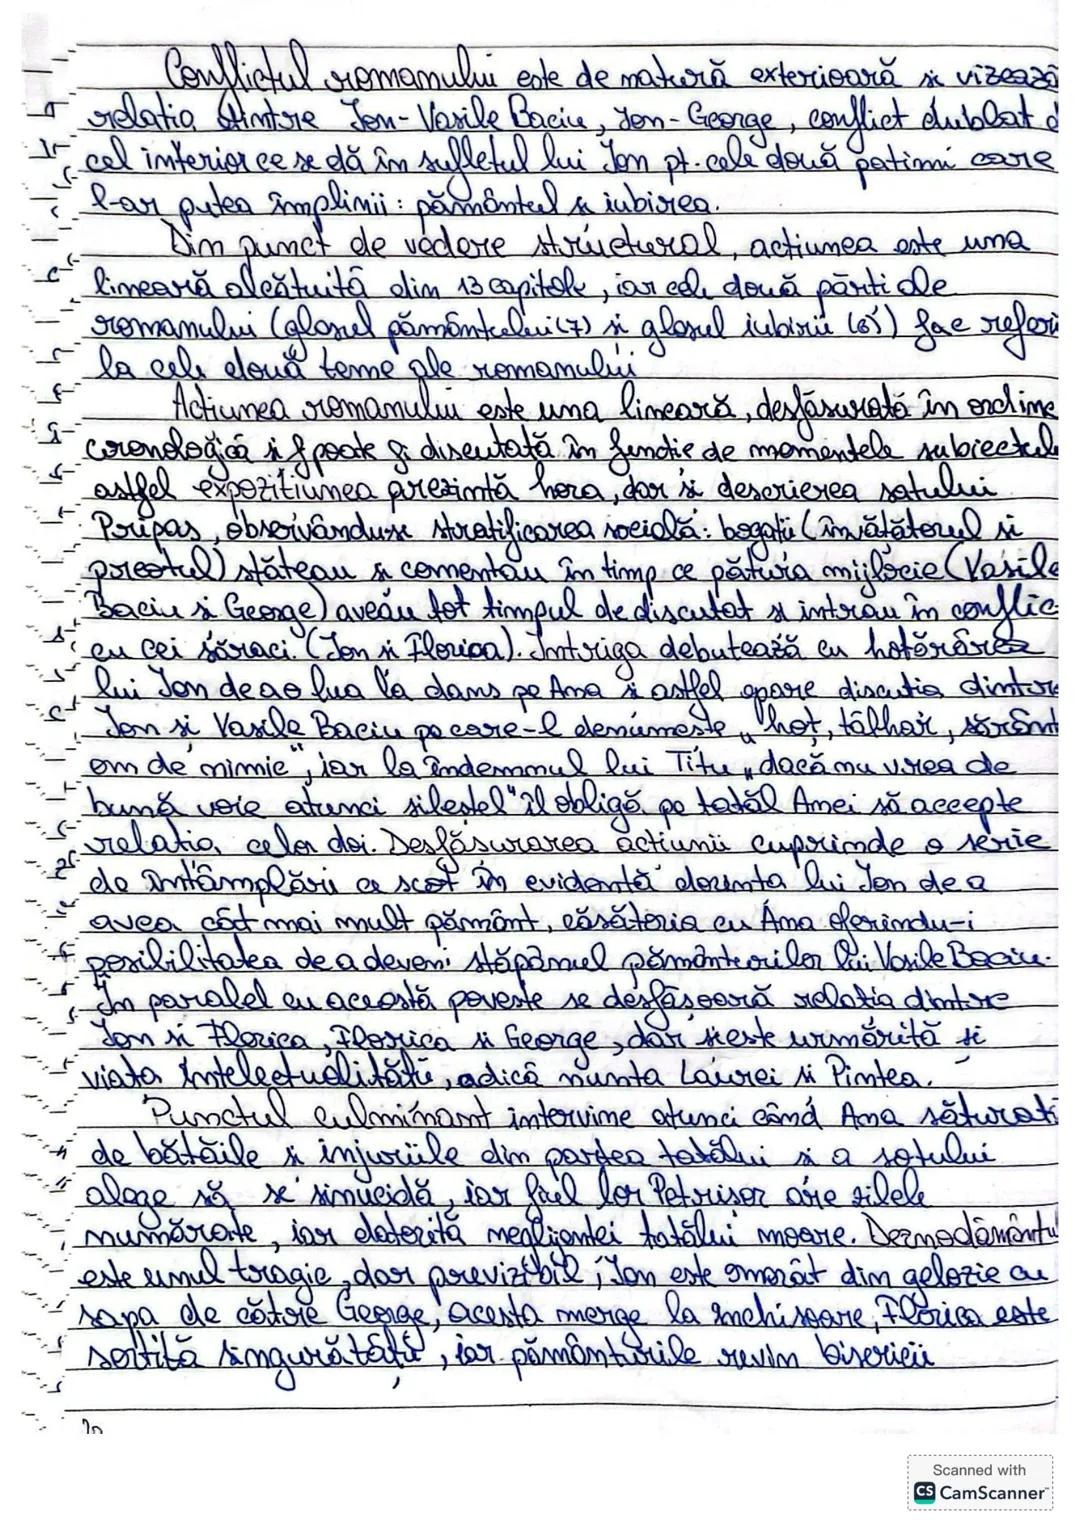 Conflictul romanului este de natură exterioară și vizează
relatia dintre Ion-Vasile Baciu, Ion-George, conflict dublat d
cel interior ce se dă în sufletul lui Ion pt. cele două patimi care
l-ar putea împlinii: pământul și iubirea.
Din punct de vedere structural, actiunea este una
lineară alcătuită din 13 capitole, iar cele două părti ale
romanului (glasul pământului(7) si glasul iubirii (6)) fac referi
la cele două teme ale romanului
Actiunea romanului este una lineară, desfăsurată în ordine
cronologică si poate fi discutată în functie de momentele subiectulu
astfel expozitiunea prezintă hora, dar si descrierea satului
Pripas, observându-se stratificarea socială: bogatii (învătătorul si
preotul) stăteau si comentau în timp ce pătura mijlocie (Vasile
Baciu si George) aveau tot timpul de discutat si intrau în conflic
cu cei săraci. (Ion si Florica). Intriga debutează cu hotărârea
lui Ion de a o lua la dans pe Ana si astfel apare discutia dintre
Ion si Vasile Baciu pe care-l denumeste „hot, tâlhar, sărânt
om de nimic", iar la îndemnul lui Titu „dacă nu vrea de
bună voie atunci silestel" îl obligă pe tatăl Anei să accepte
relatia celor doi. Desfăsurarea actiunii cuprinde o serie
de întâmplări ce scot în evidentă dorinta lui Ion de a
avea cât mai mult pământ, căsătoria cu Ana oferindu-i
posibilitatea de a deveni stăpânul pământurilor lui Vasile Baciu.
În paralel cu această poveste se desfăsoară relatia dintre
Ion si Florica, Florica si George, dar si este urmărită si
viata intelectualitătii, adică nunta Laurei si Pintea.
Punctul culminant intervine atunci când Ana săturată
de bătăile si injuriile din partea tatălui si a sotului
alege să se sinucidă, iar fiul lor Petrisor are zilele
numărate, iar datorită neglijentei tatălui moare. Deznodământul
este unul tragic, dar previzibil, Ion este omorât din gelozie cu
sapa de către George, acesta merge la închisoare, Florica este
sortită singurătătii, iar pământurile revin bisericii
Scanned with
CS CamScanner